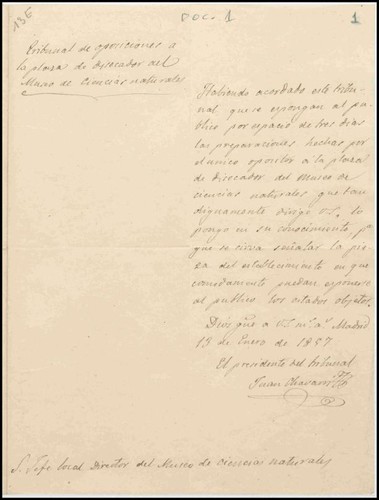 136
DOC. 1
1
Tribunal de oposiciones a
la plaza de disecador del
Museo de Ciencias naturales
Habiendo acordado este tribu-
nal que se espongan al pu-
blico por espacio de tres dias
las preparaciones hechas por
el unico opositor á la plaza
de disecador del Museo de
ciencias naturales que tan
dignamente dirige V.S. lo
pongo en su conocimiento, pa
que se sirva señalar la pie-
za del establecimiento en que
comodamente puedan esponerse
al publico los citados objetos.
Dios gue a V.S. ms. as. Madrid
15 de Enero de 1857
El presidente del tribunal
Juan Chavarri
S. Jefe local Director del Museo de ciencias naturales